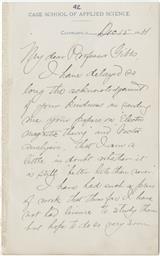 42
CASE SCHOOL OF APPLIED SCIENCE.
CLEVELAND, Dec 15 1888
My dear Professor Gibbs
I have delayed so
long the acknowledgment
of your kindness in sending
me your papers on Electro
magnetic theory and Vector
Analysis, that I am a
little in doubt whether it
is still better late than never.
I have had such a press
of work that thus far I have
not had leisure to study them
but hope to do so very soon